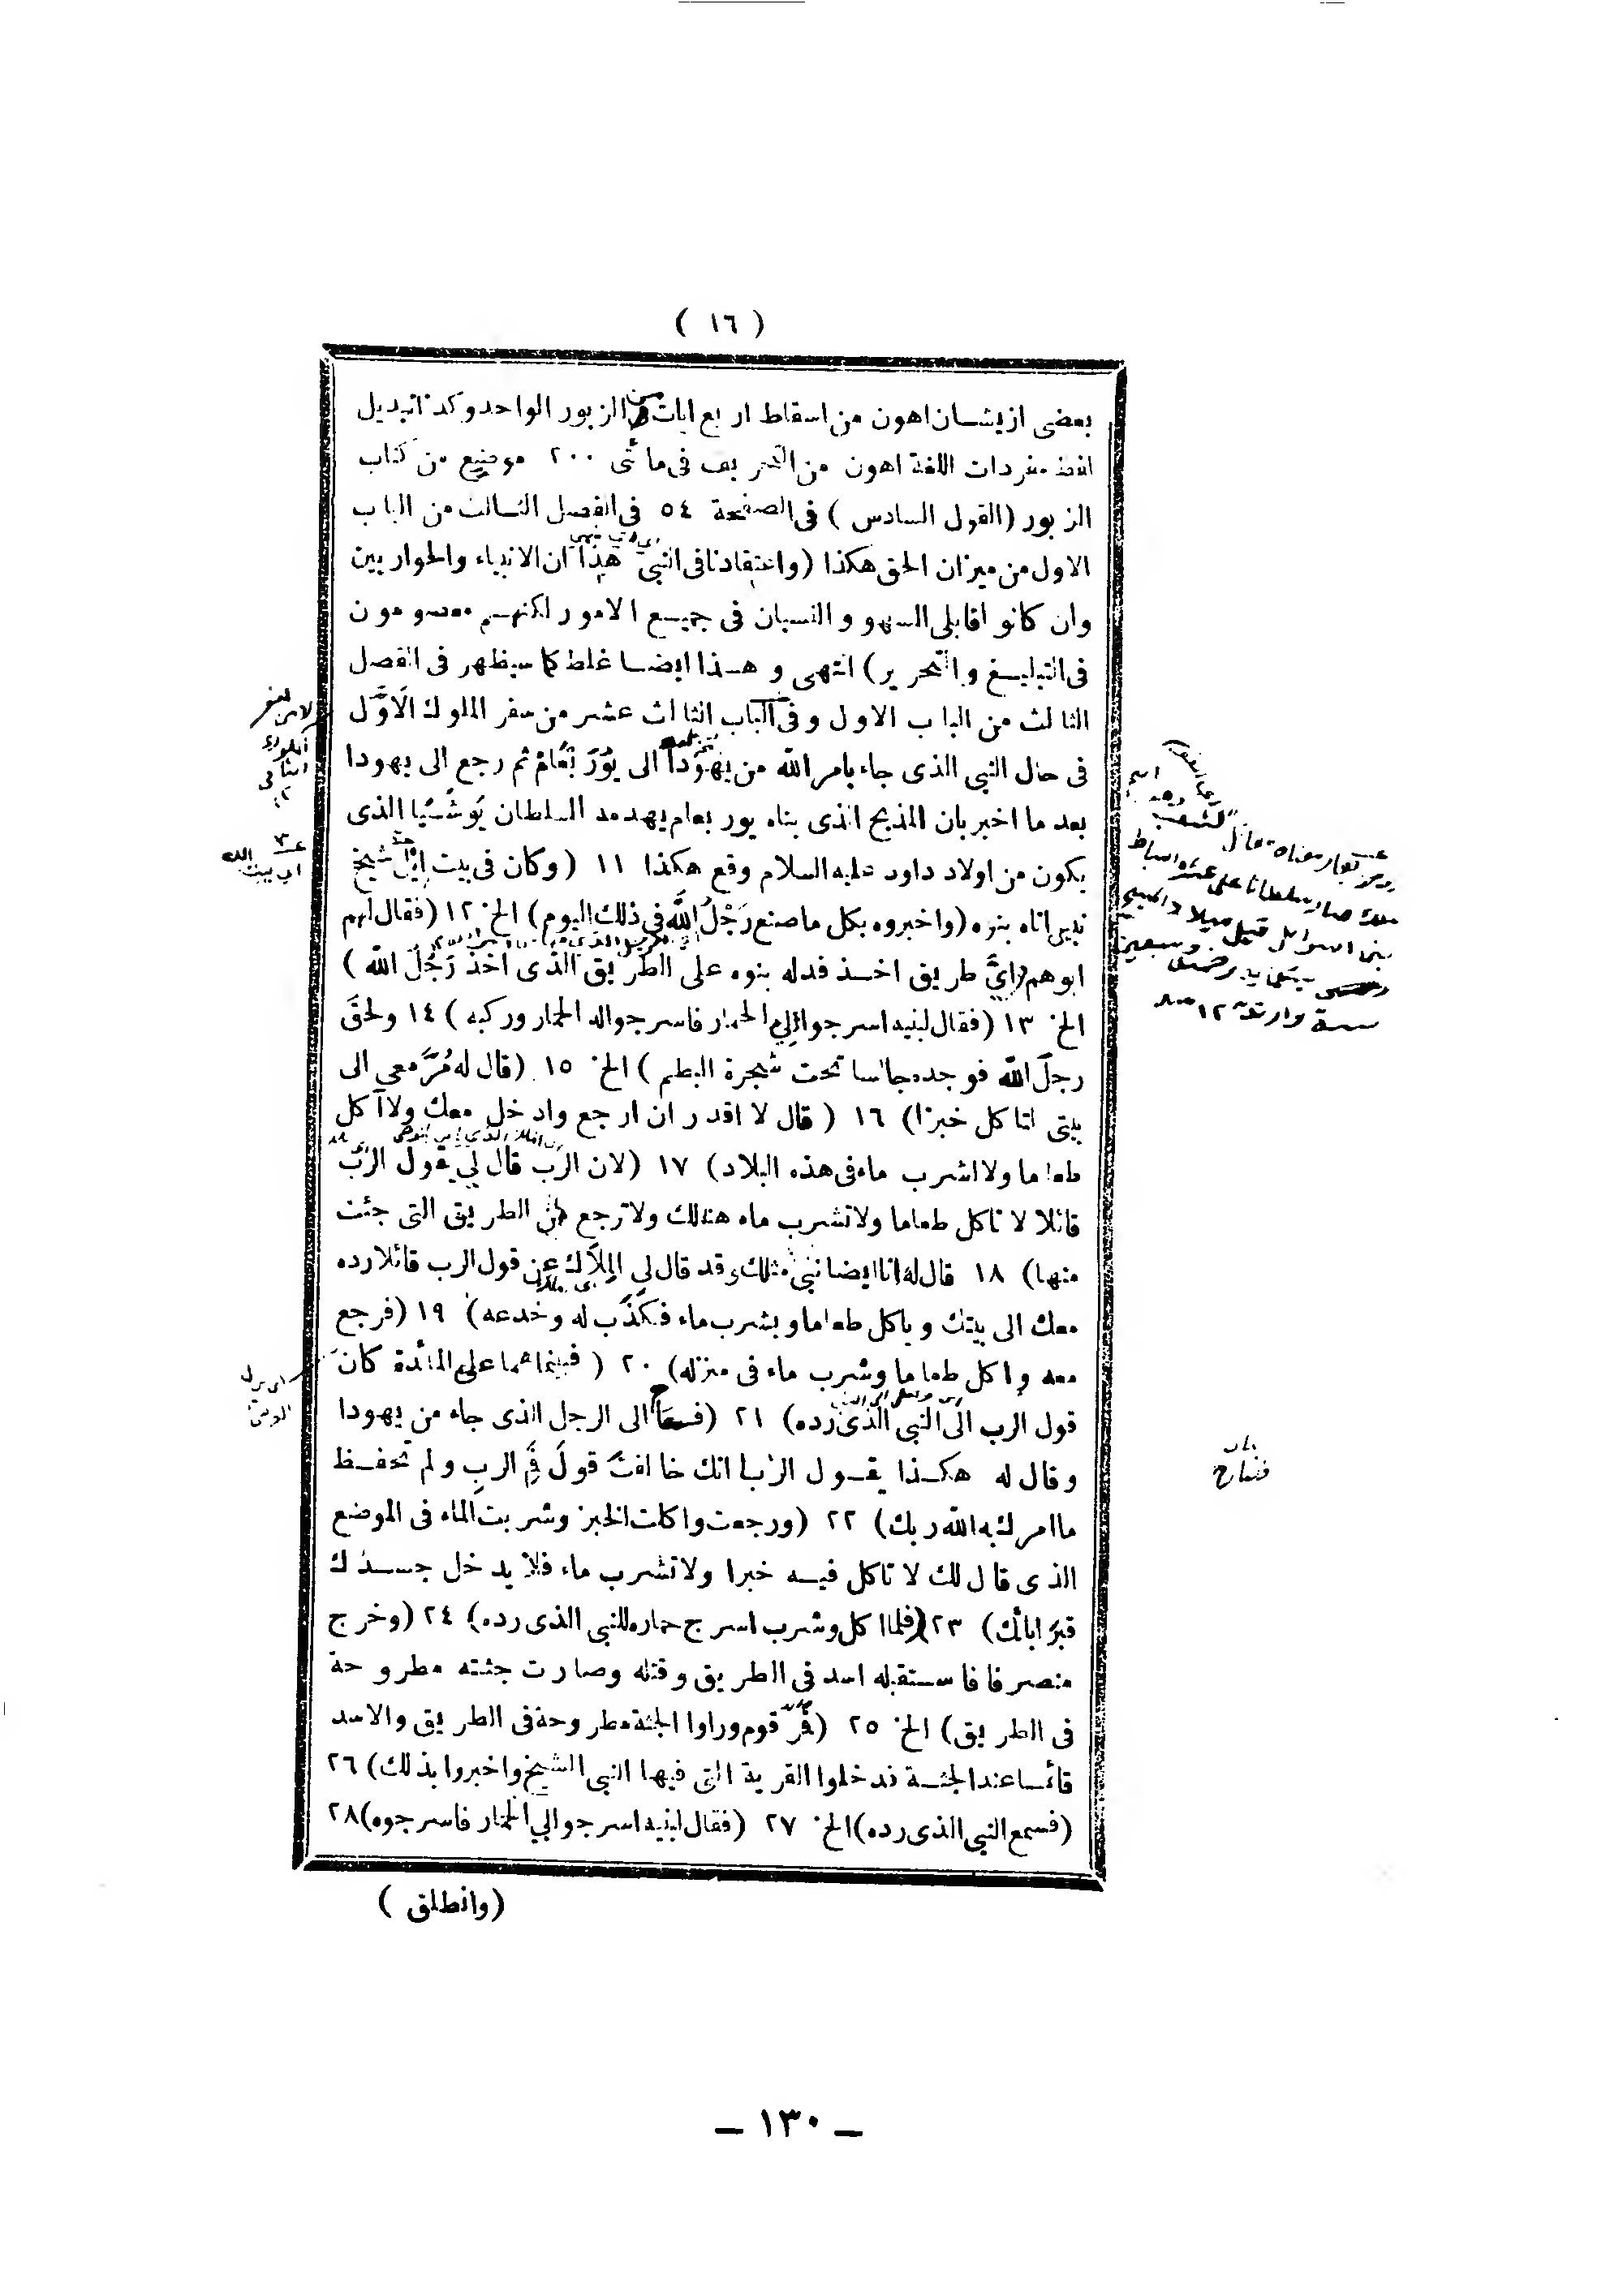 ( ١٦ )
بعضى ازيشان اهون من اسقاط اربع ايات من الزبور الواحد وكذا تبديل
لفظ مفردات اللغة اهون من التحريف فى مائتى ٢٠٠ موضع من كتاب
الزبور (القول السادس ) فى الصفحة ٥٤ فى الفصل الثالث من الباب
الاول من ميزان الحق هكذا (واعتقادنا فى النبى هذا ان الانبياء والحواريين
وان كانوا قابلى السهو والنسيان فى جميع الامور لكنهم معصومون
فى التبليغ والتحرير) انتهى وهذا ايضا غلط كما سيظهر فى الفصل
الثالث من الباب الاول وفى الباب الثالث عشر من سفر الملوك الاول
فى حال النبى الذى جاء بامر الله من يهودا الى يُوُرَ بْعَامْ ثم رجع الى يهودا
بعد ما اخبر بان المذبح الذى بناه يور بعام يهدمه السلطان يَوشَيَّا الذى
يكون من اولاد داود عليه السلام وقع هكذا ١١ (وكان فى بيت ايل شيخ
نبى اتاه بنوه (واخبروه بكل ما صنع رَجْلُ الله فى ذلك اليوم) الخ ١٢ (فقال لهم
ابوهم اىَّ طريق اخذ فدله بنوه على الطريق الذى اخذ رَجُلُ الله )
الخ ١٣ (فقال لبنيه اسرجوا لى الحمار فاسرجوا له الحمار وركبه ) ١٤ ولحق
رجلَ الله فوجده جالسا تحت شجرة البطم ) الخ ١٥ (قال له مُرَّ معى الى
بيتى لتاكل خبزا) ١٦ ( قال لا اقدر ان ارجع وادخل معك ولا آكل
طعاما ولا اشرب ماء فى هذه البلاد) ١٧ (لان الرب قال لى بقول الرب
قائلا لا تاكل طعاما ولا تشرب ماء هنالك ولا ترجع فى الطريق التى جئت
منها) ١٨ قال له انا ايضا نبى مثلك وقد قال لى الملاك عن قول الرب قائلا رده
معك الى بيتك وياكل طعاما ويشرب ماء فكذب له وخدعه) ١٩ (فرجع
معه واكل طعاما وشرب ماء فى منزله) ٢٠ ( فبينما هما على المائدة كان
قول الرب الى النبى الذى رده) ٢١ ( الى الرجل الذى جاء من يهودا
وقال له هكذا يقول الرب انك خالفت قولَ فَمِ الربِ ولم تحفظ
ما امرك به الله ربك) ٢٢ (ورجعت واكلت الخبز وشربت الماء فى الموضع
الذى قال لك لا تاكل فيه خبزا ولا تشرب ماء فلا يدخل جسدك
قبر ابائك) ٢٣ (فلما اكل وشرب اسرج حماره للنبى الذى رده) ٢٤ (وخرج
منصرفا فاستقبله اسد فى الطريق وقتله وصارت جثته مطروحة
فى الطريق) الخ ٢٥ (فمر قوم وراوا الجثة مطروحة فى الطريق والاسد
قائما عند الجثة فدخلوا القرية التى فيها النبى الشيخ واخبروا بذلك) ٢٦
(فسمع النبى الذى رده) الخ ٢٧ (فقال لبنيه اسرجوا لى الحمار فاسرجوه) ٢٨
(وانطلق )
– ١٣٠ –